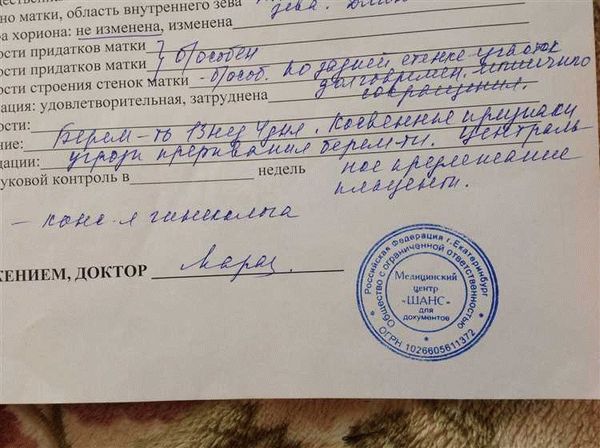 но матки, область внутреннего зева зева.
ра хориона: не изменена, изменена
ости придатков матки } б/особен
ости придатков матки
ости строения стенок матки - б/особ. по задней стенке участок
ация: удовлетворительная, затруднена долговремен.
сти: сокращения.
ние: Берем-ть 13нед 4дня. Косвенные признаки
дации: угрозы прерывания берем-ти. Централь
уковой контроль в недель ное предлежание
плаценты.
– конс-я гинеколога
ЖЕНИЕМ, ДОКТОР
Российская Федерация г. Екатеринбург
Общество с ограниченной ответственностью
Медицинский
центр
«ШАНС»
для
документов
ОГРН 1026605611372